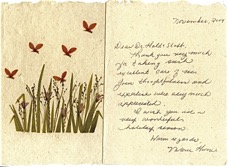 November, 2009
Dear Dr. Hall & Staff,
Thank you very much
for taking such
excellent care of me.
Your thoughtfulness and
expertise were very much
appreciated.
I wish you all a
very wonderful
holiday season.
Warm regards,